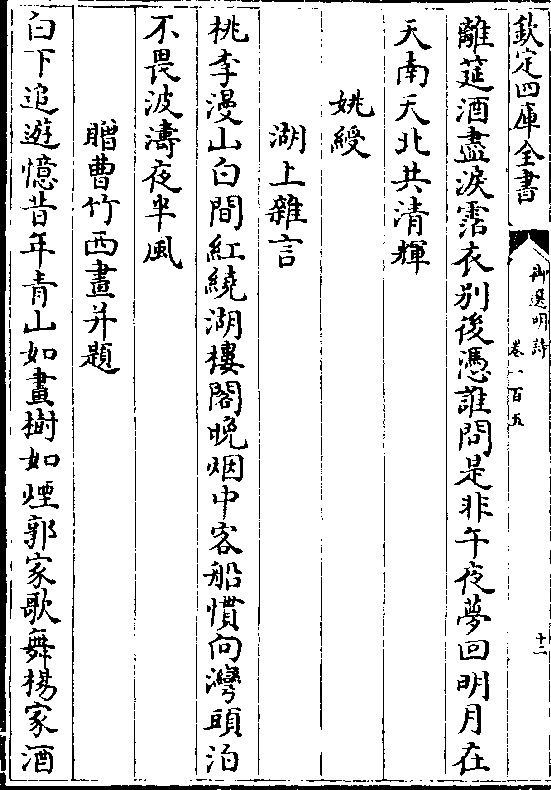 欽定四庫全書
御選明詩
卷一百五
十二
離筵酒盡淚霑衣别後憑誰問是非午夜夢回明月在
天南天北共清輝
姚綬
湖上雜言
桃李漫山白間紅繞湖樓閣晩烟中客船慣向灣頭泊
不畏波濤夜半風
贈曹竹西畫并題
白下追遊憶昔年青山如畫樹如煙郭家歌舞楊家酒